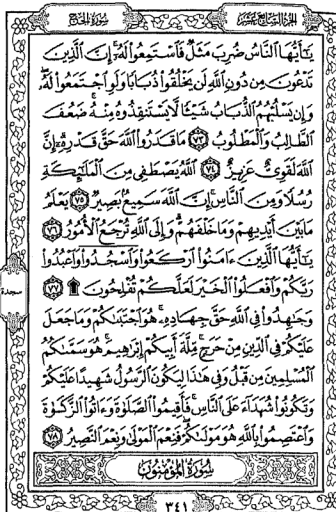 سورة الحج
الجزء السابع عشر
يَٰٓأَيُّهَا ٱلنَّاسُ ضُرِبَ مَثَلٞ فَٱسۡتَمِعُواْ لَهُۥٓۚ إِنَّ ٱلَّذِينَ
تَدۡعُونَ مِن دُونِ ٱللَّهِ لَن يَخۡلُقُواْ ذُبَابٗا وَلَوِ ٱجۡتَمَعُواْ لَهُۥۖ
وَإِن يَسۡلُبۡهُمُ ٱلذُّبَابُ شَيۡـٔٗا لَّا يَسۡتَنقِذُوهُ مِنۡهُۚ ضَعُفَ
ٱلطَّالِبُ وَٱلۡمَطۡلُوبُ ٧٣ مَا قَدَرُواْ ٱللَّهَ حَقَّ قَدۡرِهِۦٓۚ إِنَّ
ٱللَّهَ لَقَوِيٌّ عَزِيزٌ ٧٤ ٱللَّهُ يَصۡطَفِي مِنَ ٱلۡمَلَٰٓئِكَةِ
رُسُلٗا وَمِنَ ٱلنَّاسِۚ إِنَّ ٱللَّهَ سَمِيعُۢ بَصِيرٞ ٧٥ يَعۡلَمُ
مَا بَيۡنَ أَيۡدِيهِمۡ وَمَا خَلۡفَهُمۡۚ وَإِلَى ٱللَّهِ تُرۡجَعُ ٱلۡأُمُورُ ٧٦
يَٰٓأَيُّهَا ٱلَّذِينَ ءَامَنُواْ ٱرۡكَعُواْ وَٱسۡجُدُواْ وَٱعۡبُدُواْ
رَبَّكُمۡ وَٱفۡعَلُواْ ٱلۡخَيۡرَ لَعَلَّكُمۡ تُفۡلِحُونَ ۩ ٧٧
سجدة
وَجَٰهِدُواْ فِي ٱللَّهِ حَقَّ جِهَادِهِۦۚ هُوَ ٱجۡتَبَىٰكُمۡ وَمَا جَعَلَ
عَلَيۡكُمۡ فِي ٱلدِّينِ مِنۡ حَرَجٖۚ مِّلَّةَ أَبِيكُمۡ إِبۡرَٰهِيمَۚ هُوَ سَمَّىٰكُمُ
ٱلۡمُسۡلِمِينَ مِن قَبۡلُ وَفِي هَٰذَا لِيَكُونَ ٱلرَّسُولُ شَهِيدًا عَلَيۡكُمۡ
وَتَكُونُواْ شُهَدَآءَ عَلَى ٱلنَّاسِۚ فَأَقِيمُواْ ٱلصَّلَوٰةَ وَءَاتُواْ ٱلزَّكَوٰةَ
وَٱعۡتَصِمُواْ بِٱللَّهِ هُوَ مَوۡلَىٰكُمۡۖ فَنِعۡمَ ٱلۡمَوۡلَىٰ وَنِعۡمَ ٱلنَّصِيرُ ٧٨
سورة المؤمنون
٣٤١